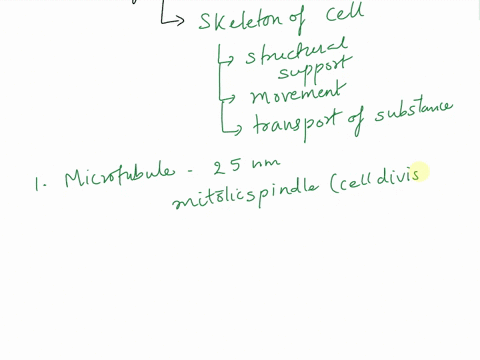 Skeleton of cell
structural
support
movement
transport of substance
1. Microtubule - 25 nm
mitotic spindle (cell divis